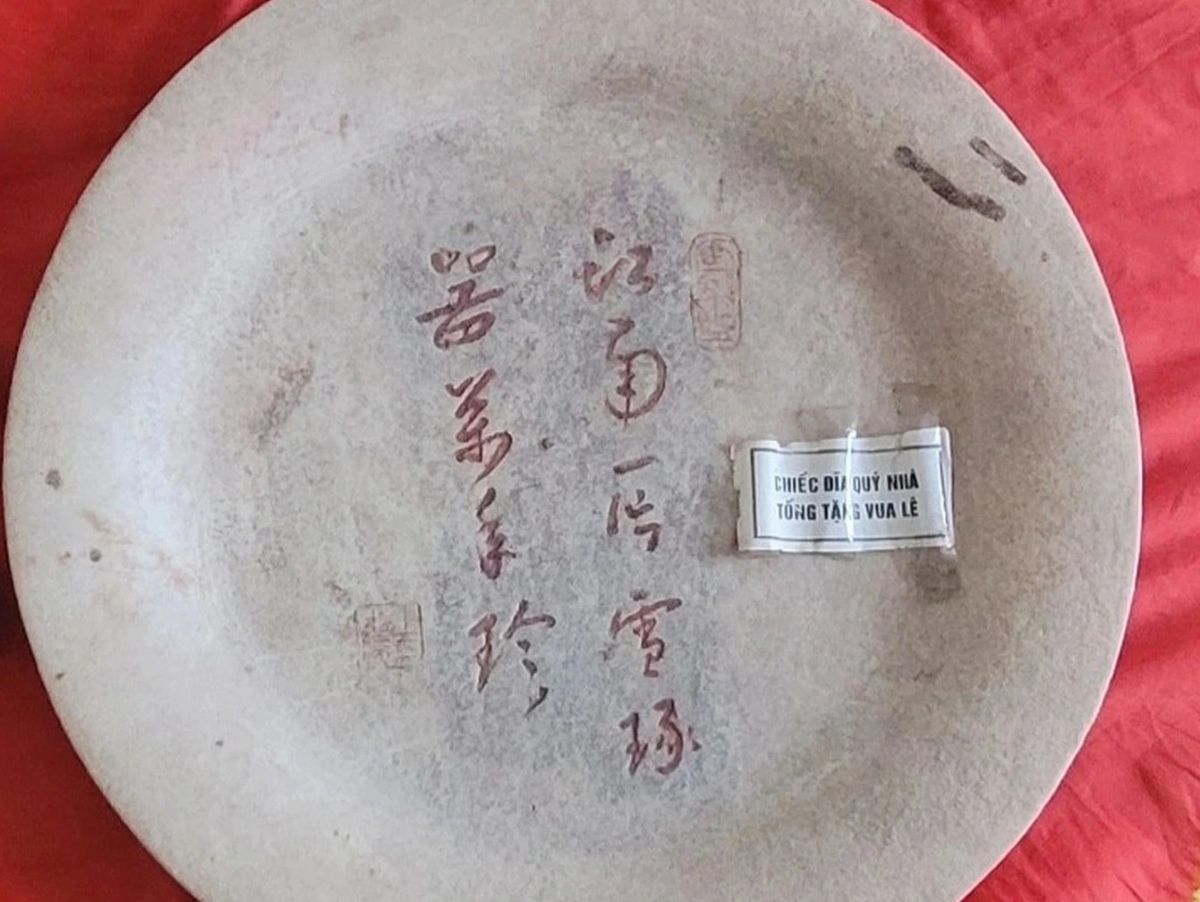 江南一片雪琢
器萬年珍
CHIẾC ĐĨA QUÝ NHÀ
TỐNG TẶNG VUA LÊ